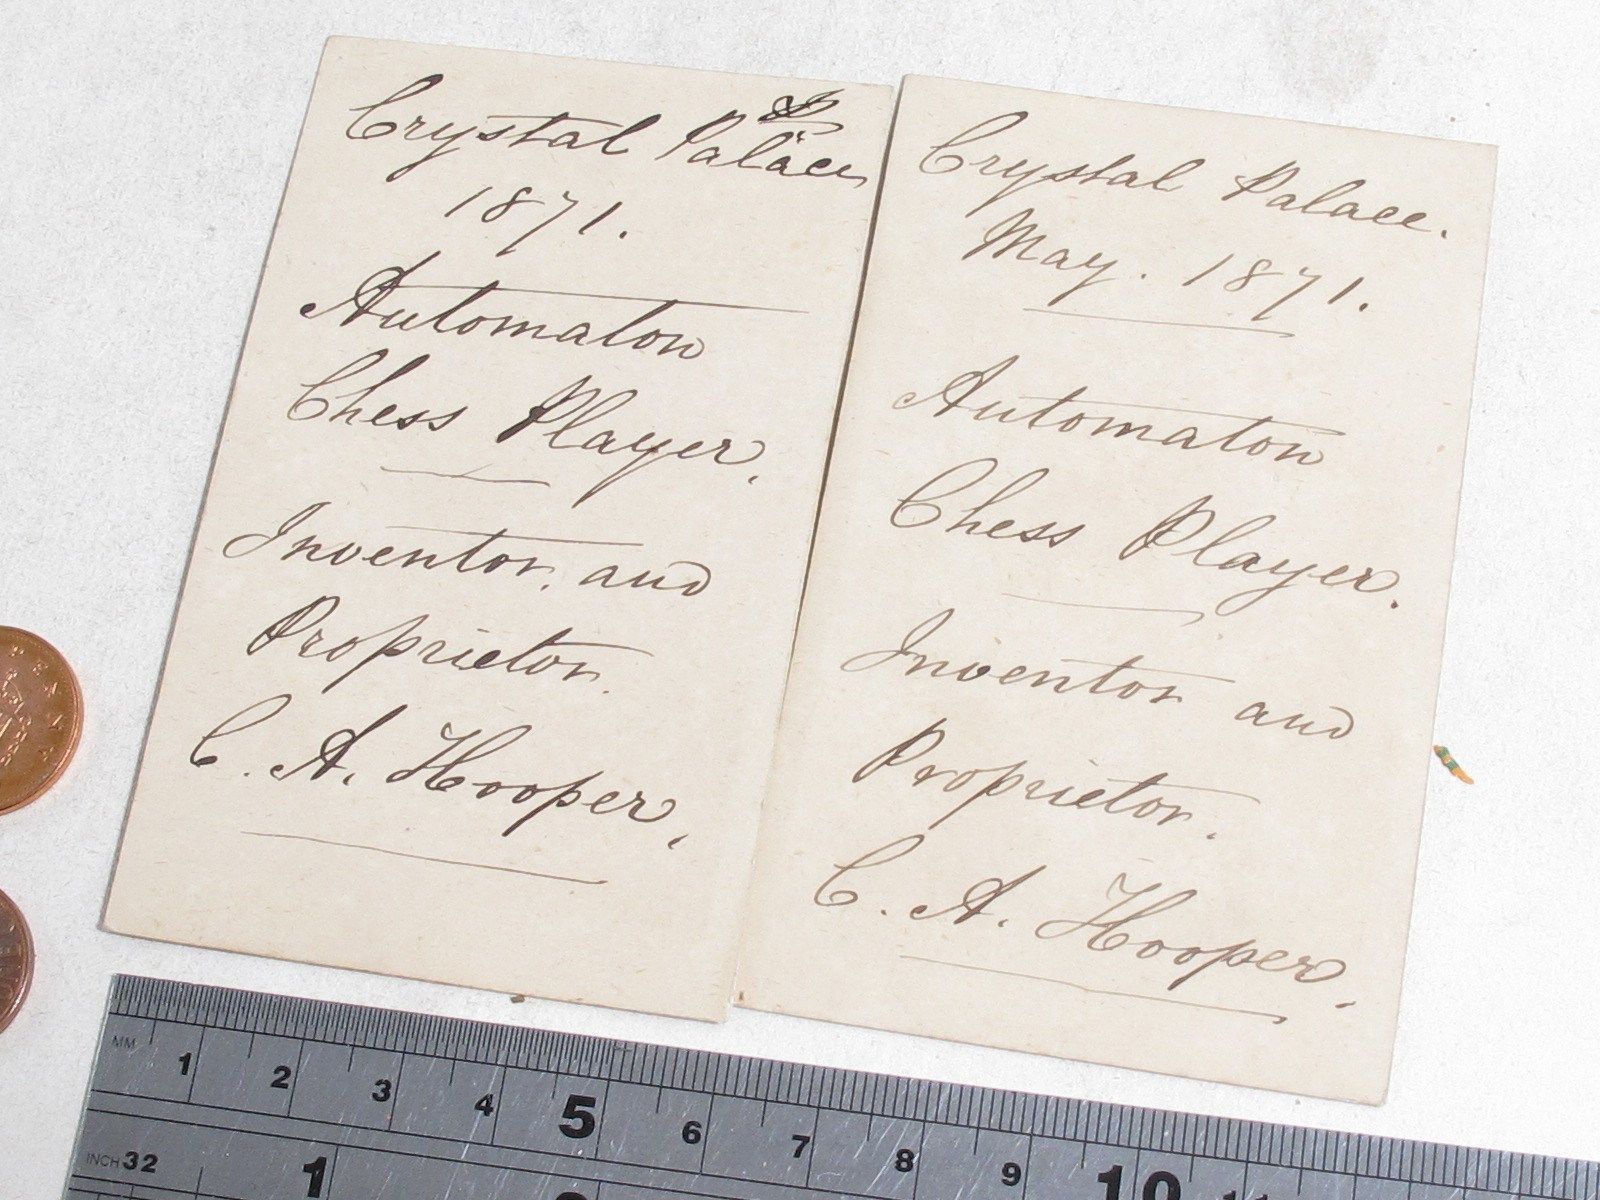 Crystal Palace
1871.
Automaton
Chess Player.
Inventor. and
Proprietor.
C. A. Hooper.
Crystal Palace.
May. 1871.
Automaton
Chess Player.
Inventor and
Proprietor.
C. A. Hooper.
MM 1 2 3 4 5 6 7 8 9 10
INCH 32 1